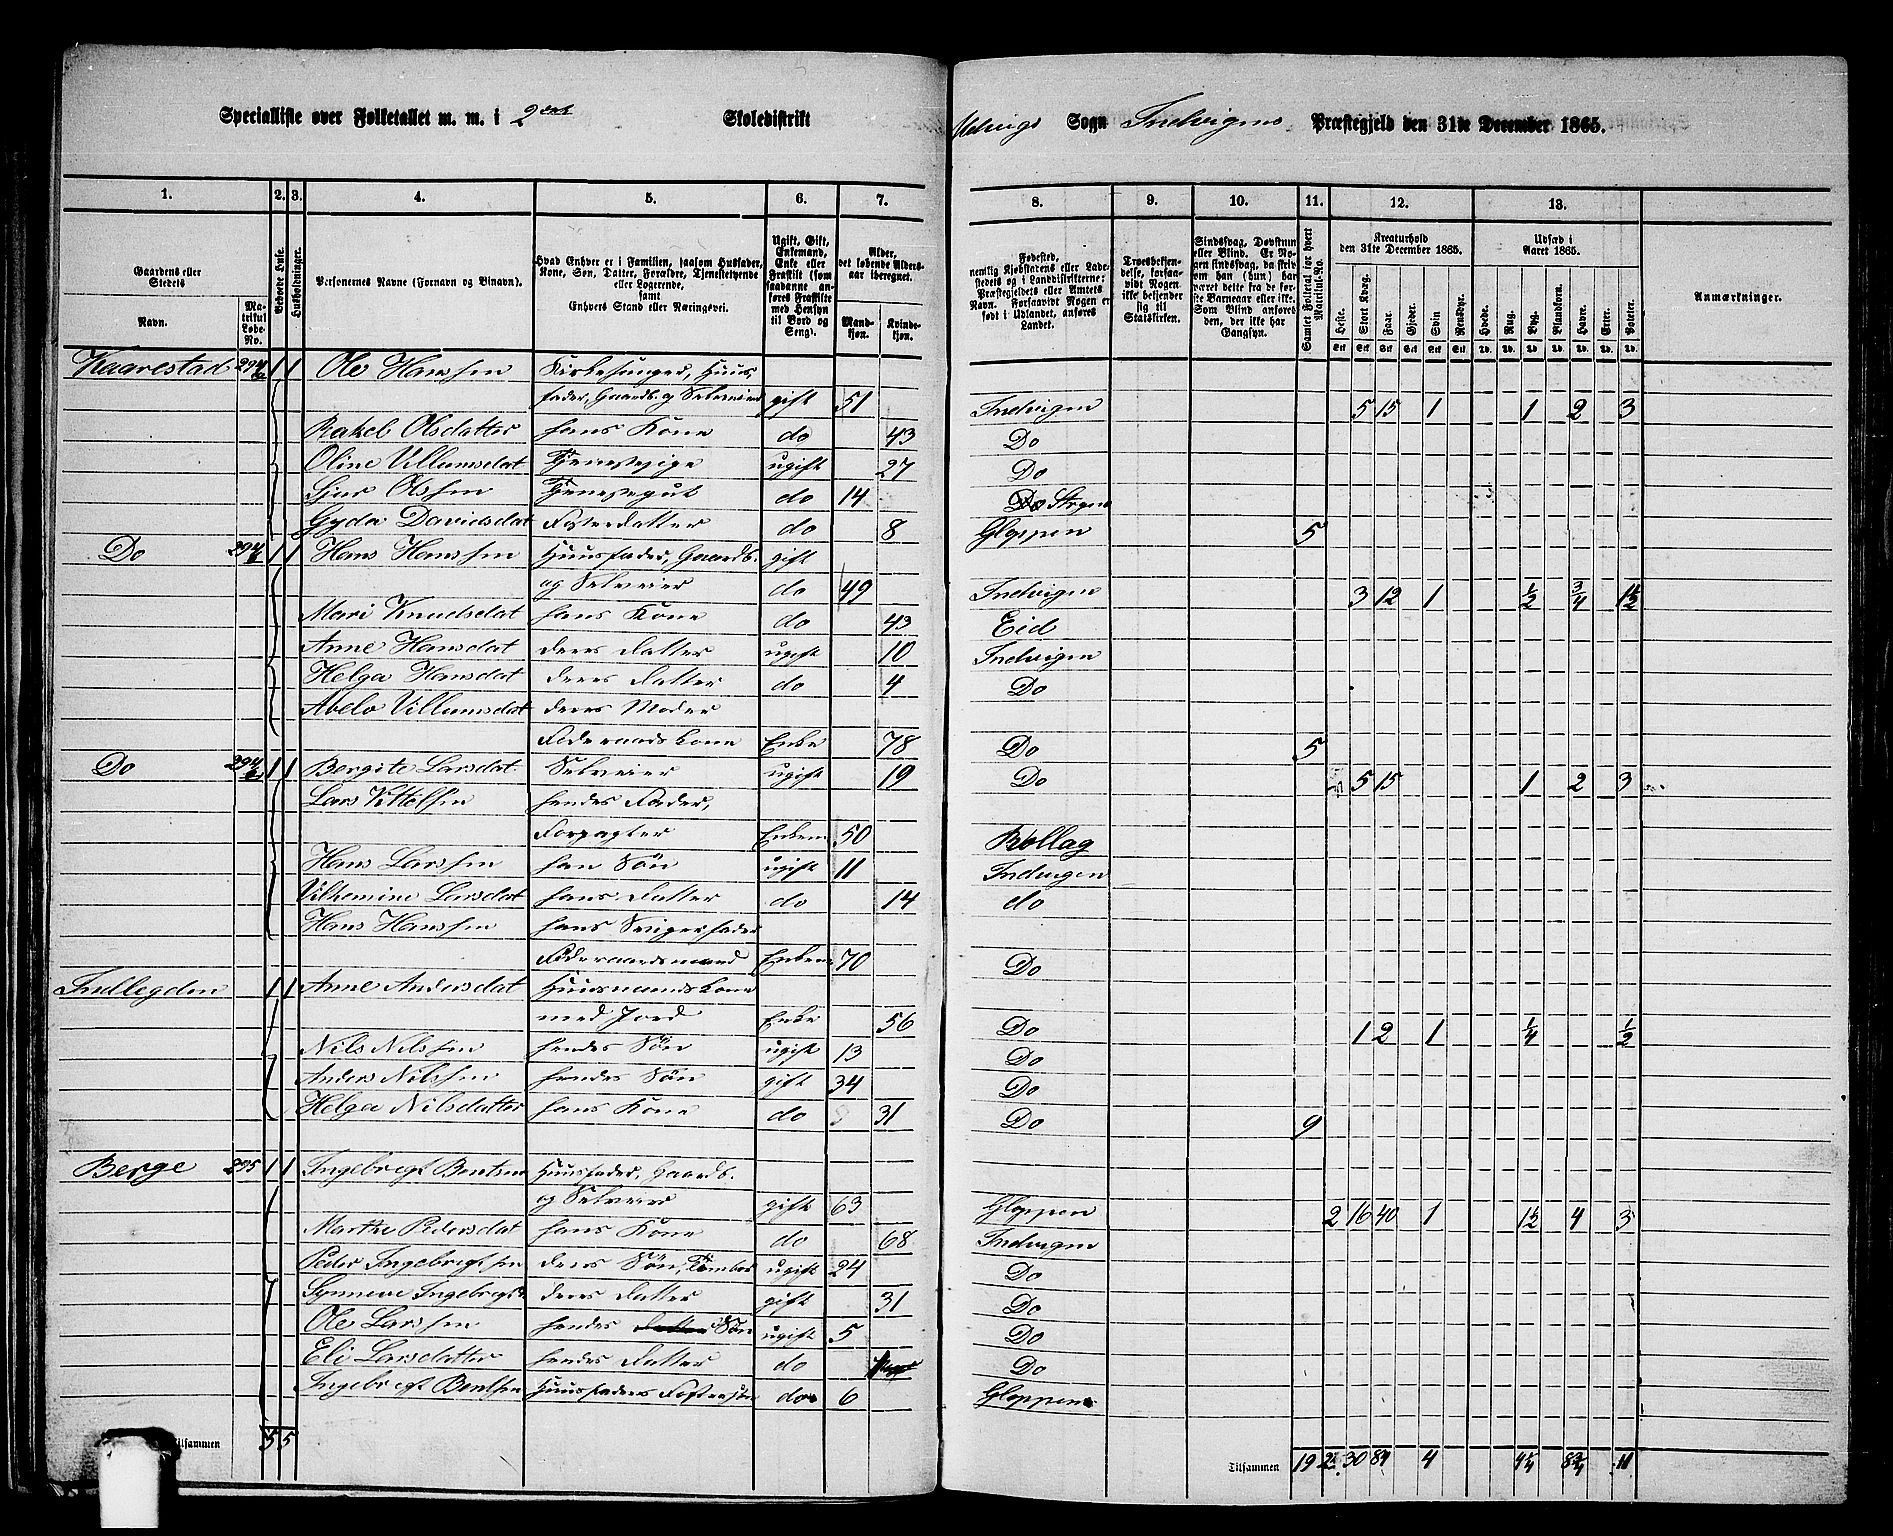 Specialliste over Folketallet m. m. i 2det Skoledistrikt
Utvigs Sogn Indvigens Præstegjeld den 31te December 1865.
1. 2. 3. 4. 5. 6. 7. 8. 9. 10. 11. 12. 13.
Gaardens eller Stedets
Navn.
Matrikul Løbe-No.
Bebøede Huse.
Husholdninger.
Personernes Navne (Fornavn og Binavn).
Hvad Enhver er i Familien, saasom Husfader, Kone, Søn, Datter, Forældre, Tjenestetyende eller Logerende,
samt
Enhvers Stand eller Næringsvei.
Ugift, Gift, Enkemand, Enke eller Fraskilt (som saadanne anføres Fraskilte med Hensyn til Bord og Seng).
Alder, det løbende Aldersaar iberegnet.
Mandkjøn.
Kvindekjøn.
Fødested,
nemlig Kjøbstadens eller Ladestedets og i Landdistrikterne: Præstegjeldets eller Amtets Navn. Forsaavidt Nogen er født i Udlandet, anføres Landet.
Troesbekjendelse, forsaavidt Nogen ikke bekjender sig til Statskirken.
Sindssvag, Døvstum eller Blind. Er Nogen sindssvag, da skrives om han (hun) har været dette fra de første Barneaar eller ikke. Som Blind anføres den, der ikke har Gangsyn.
Samlet Folketal for hvert Matrikul-No.
Kreaturhold den 31te December 1865.
Heste. Stort Kvæg. Faar. Gjeder. Svin. Rensdyr.
Udsæd i Aaret 1865.
Hvede. Rug. Byg. Blandkorn. Havre. Erter. Poteter.
Anmærkninger.
Kaarestad 294a 1 1 Ole Hanssen Kirkesanger, Huus-
fader, Gaardb. og Selveier gift 51 Indvigen 5 15 1 1 2 3
Rakel Olsdatter hans Kone do 43 Do
Oline Villumsdat Tjenestepige ugift 27 Do
Olssen Tjenestegut do 14 Do
Gyda Davidsdat Fosterdatter do 8 Gloppen 5
Do 294b 1 1 Hans Hanssen Huusfader, Gaardb. gift
og Selveier do 49 Indvigen 3 12 1 1/2 3/4 1 1/2
Mari Knudsdat hans Kone do 43 Eid
Anne Hansdat deres Datter ugift 10 Indvigen
Helga Hansdat deres Datter do 4 Do
Abelo Villumsdat deres Moder
Føderaadskone Enke 78 Do 5
Do 294c 1 1 Bergite Larsdat. Selveier ugift 19 Do 5 15 1 2 3
Lars Kittilsen hendes Fader,
Forpagter Enkem 50 Rollag
Hans Larssen han Søn ugift 11 Indvigen
Vilhemine Larsdat hans Datter do 14 do
Hans Hanssen hans Svigerfader
Føderaadsmand Enkem 70 Do
Indlegden 1 1 Anne Andersdat Huusmandskone
med Jord Enke 56 Do 1 2 1 1/4 1/2
Nils Nilssen hendes Søn ugift 13 Do
Anders Nilssen hendes Søn gift 34 Do
Helga Nilsdatter hans Kone do 31 Do 9
Berge 295 1 1 Ingebrigt Bentsen Huusfader, Gaardb.
og Selveier gift 63 Gloppen 2 16 40 1 1 1/2 4 3
Marthe Pedersdat hans Kone do 68 Indvigen
Peder Ingebrigtsen deres Søn, Tømber ugift 24 Do
Synneve Ingebrigtsd. deres Datter gift 31 Do
Ole Larssen hendes Søn ugift 5 Do
Eli Larsdatter hendes Datter do Do
Ingebrigt Bentsen Huusfaders Fostersøn do 6 Gloppen
Tilsammen 5 5
Tilsammen 19 2 30 84 4 4 1/4 8 3/4 11